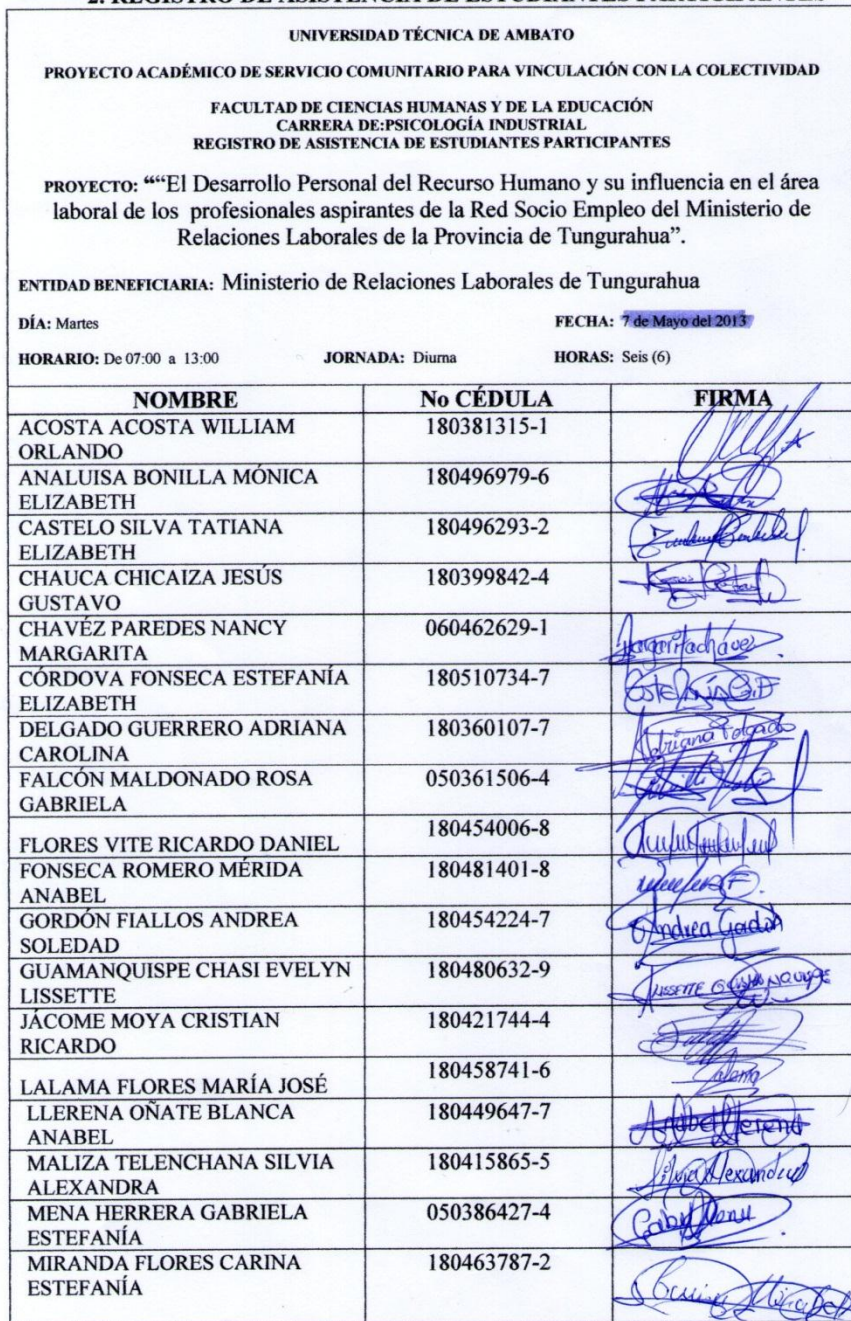 2. REGISTRO DE ASISTENCIA DE ESTUDIANTES PARTICIPANTES
UNIVERSIDAD TÉCNICA DE AMBATO
PROYECTO ACADÉMICO DE SERVICIO COMUNITARIO PARA VINCULACIÓN CON LA COLECTIVIDAD
FACULTAD DE CIENCIAS HUMANAS Y DE LA EDUCACIÓN
CARRERA DE:PSICOLOGÍA INDUSTRIAL
REGISTRO DE ASISTENCIA DE ESTUDIANTES PARTICIPANTES
PROYECTO: ““El Desarrollo Personal del Recurso Humano y su influencia en el área
laboral de los profesionales aspirantes de la Red Socio Empleo del Ministerio de
Relaciones Laborales de la Provincia de Tungurahua”.
ENTIDAD BENEFICIARIA: Ministerio de Relaciones Laborales de Tungurahua
DÍA: Martes FECHA: 7 de Mayo del 2013
HORARIO: De 07:00 a 13:00 JORNADA: Diurna HORAS: Seis (6)
NOMBRE No CÉDULA FIRMA
ACOSTA ACOSTA WILLIAM 180381315-1
ORLANDO
ANALUISA BONILLA MÓNICA 180496979-6
ELIZABETH
CASTELO SILVA TATIANA 180496293-2
ELIZABETH
CHAUCA CHICAIZA JESÚS 180399842-4
GUSTAVO
CHAVÉZ PAREDES NANCY 060462629-1
MARGARITA Margarita chávez
CÓRDOVA FONSECA ESTEFANÍA 180510734-7
ELIZABETH
DELGADO GUERRERO ADRIANA 180360107-7
CAROLINA Adriana Delgado
FALCÓN MALDONADO ROSA 050361506-4
GABRIELA
FLORES VITE RICARDO DANIEL 180454006-8
FONSECA ROMERO MÉRIDA 180481401-8
ANABEL
GORDÓN FIALLOS ANDREA 180454224-7
SOLEDAD Andrea Gordón
GUAMANQUISPE CHASI EVELYN 180480632-9
LISSETTE LISSETTE GUAMANQUISPE
JÁCOME MOYA CRISTIAN 180421744-4
RICARDO
LALAMA FLORES MARÍA JOSÉ 180458741-6
LLERENA OÑATE BLANCA 180449647-7
ANABEL Anabel Llerena
MALIZA TELENCHANA SILVIA 180415865-5
ALEXANDRA Silvia Alexandra
MENA HERRERA GABRIELA 050386427-4
ESTEFANÍA Gaby Mena
MIRANDA FLORES CARINA 180463787-2
ESTEFANÍA